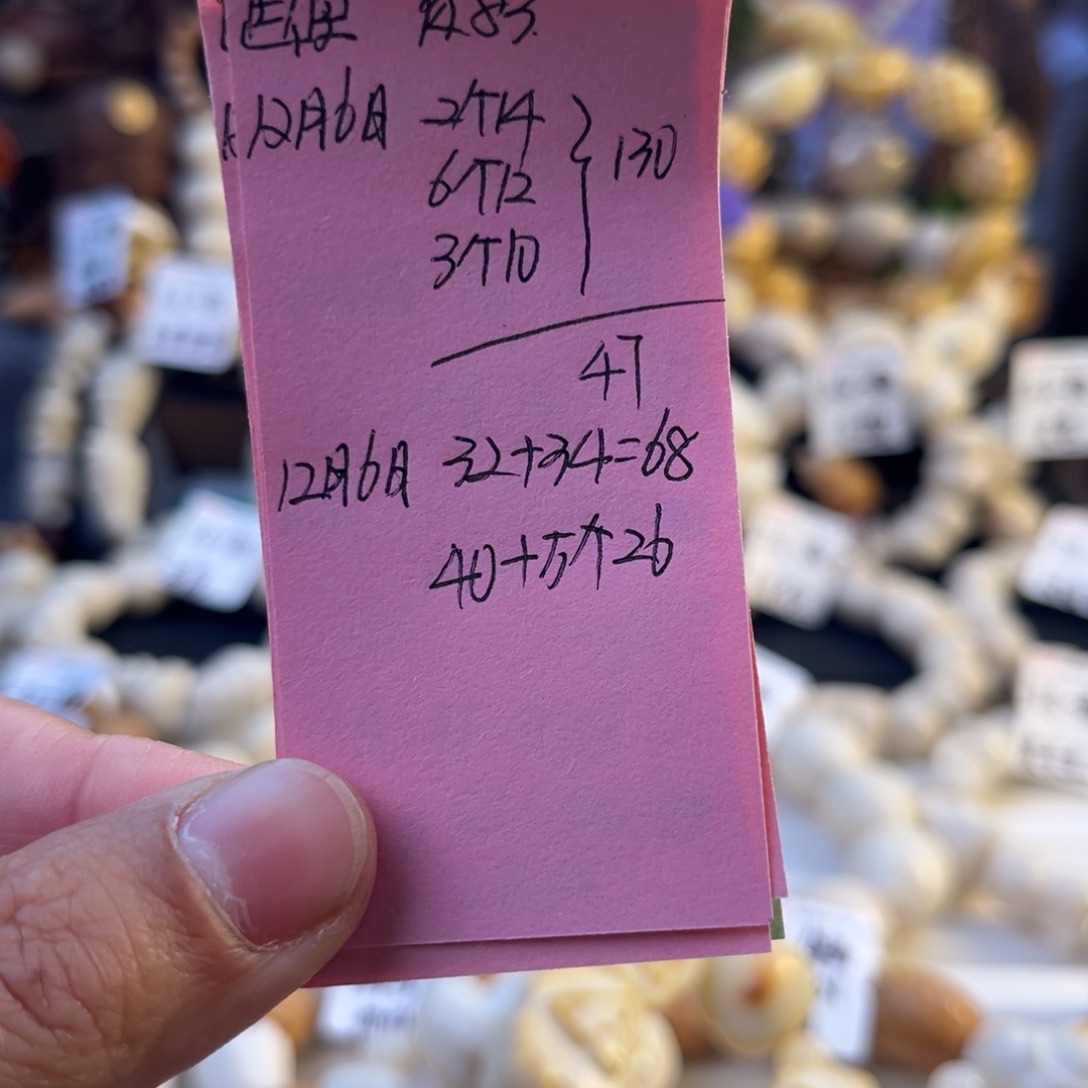 12月6日 2个14
6个12 130
3个10
47
12月6日 32+34=68
40+5个26